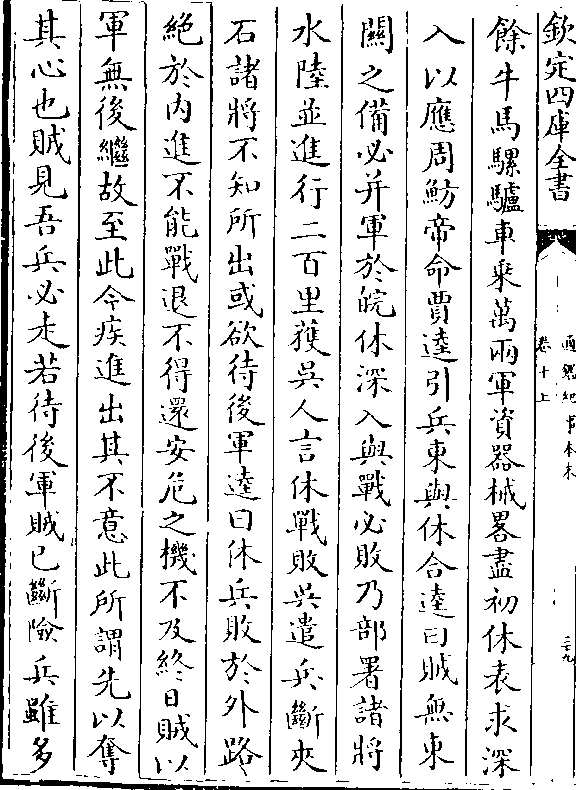 欽定四庫全書
通鑑紀事本末
卷十上
二十九
餘牛馬騾驢車乗萬兩軍資器械畧盡初休表求深
入以應周魴帝命賈逵引兵東與休合逵曰賊無東
關之備必并軍於皖休深入與戰必敗乃部署諸將
水陸並進行二百里獲吳人言休戰敗吳遣兵斷夾
石諸將不知所出或欲待後軍逵曰休兵敗於外路
絶於内進不能戰退不得還安危之機不及終日賊以
軍無後繼故至此今疾進出其不意此所謂先以奪
其心也賊見吾兵必走若待後軍賊已斷險兵雖多